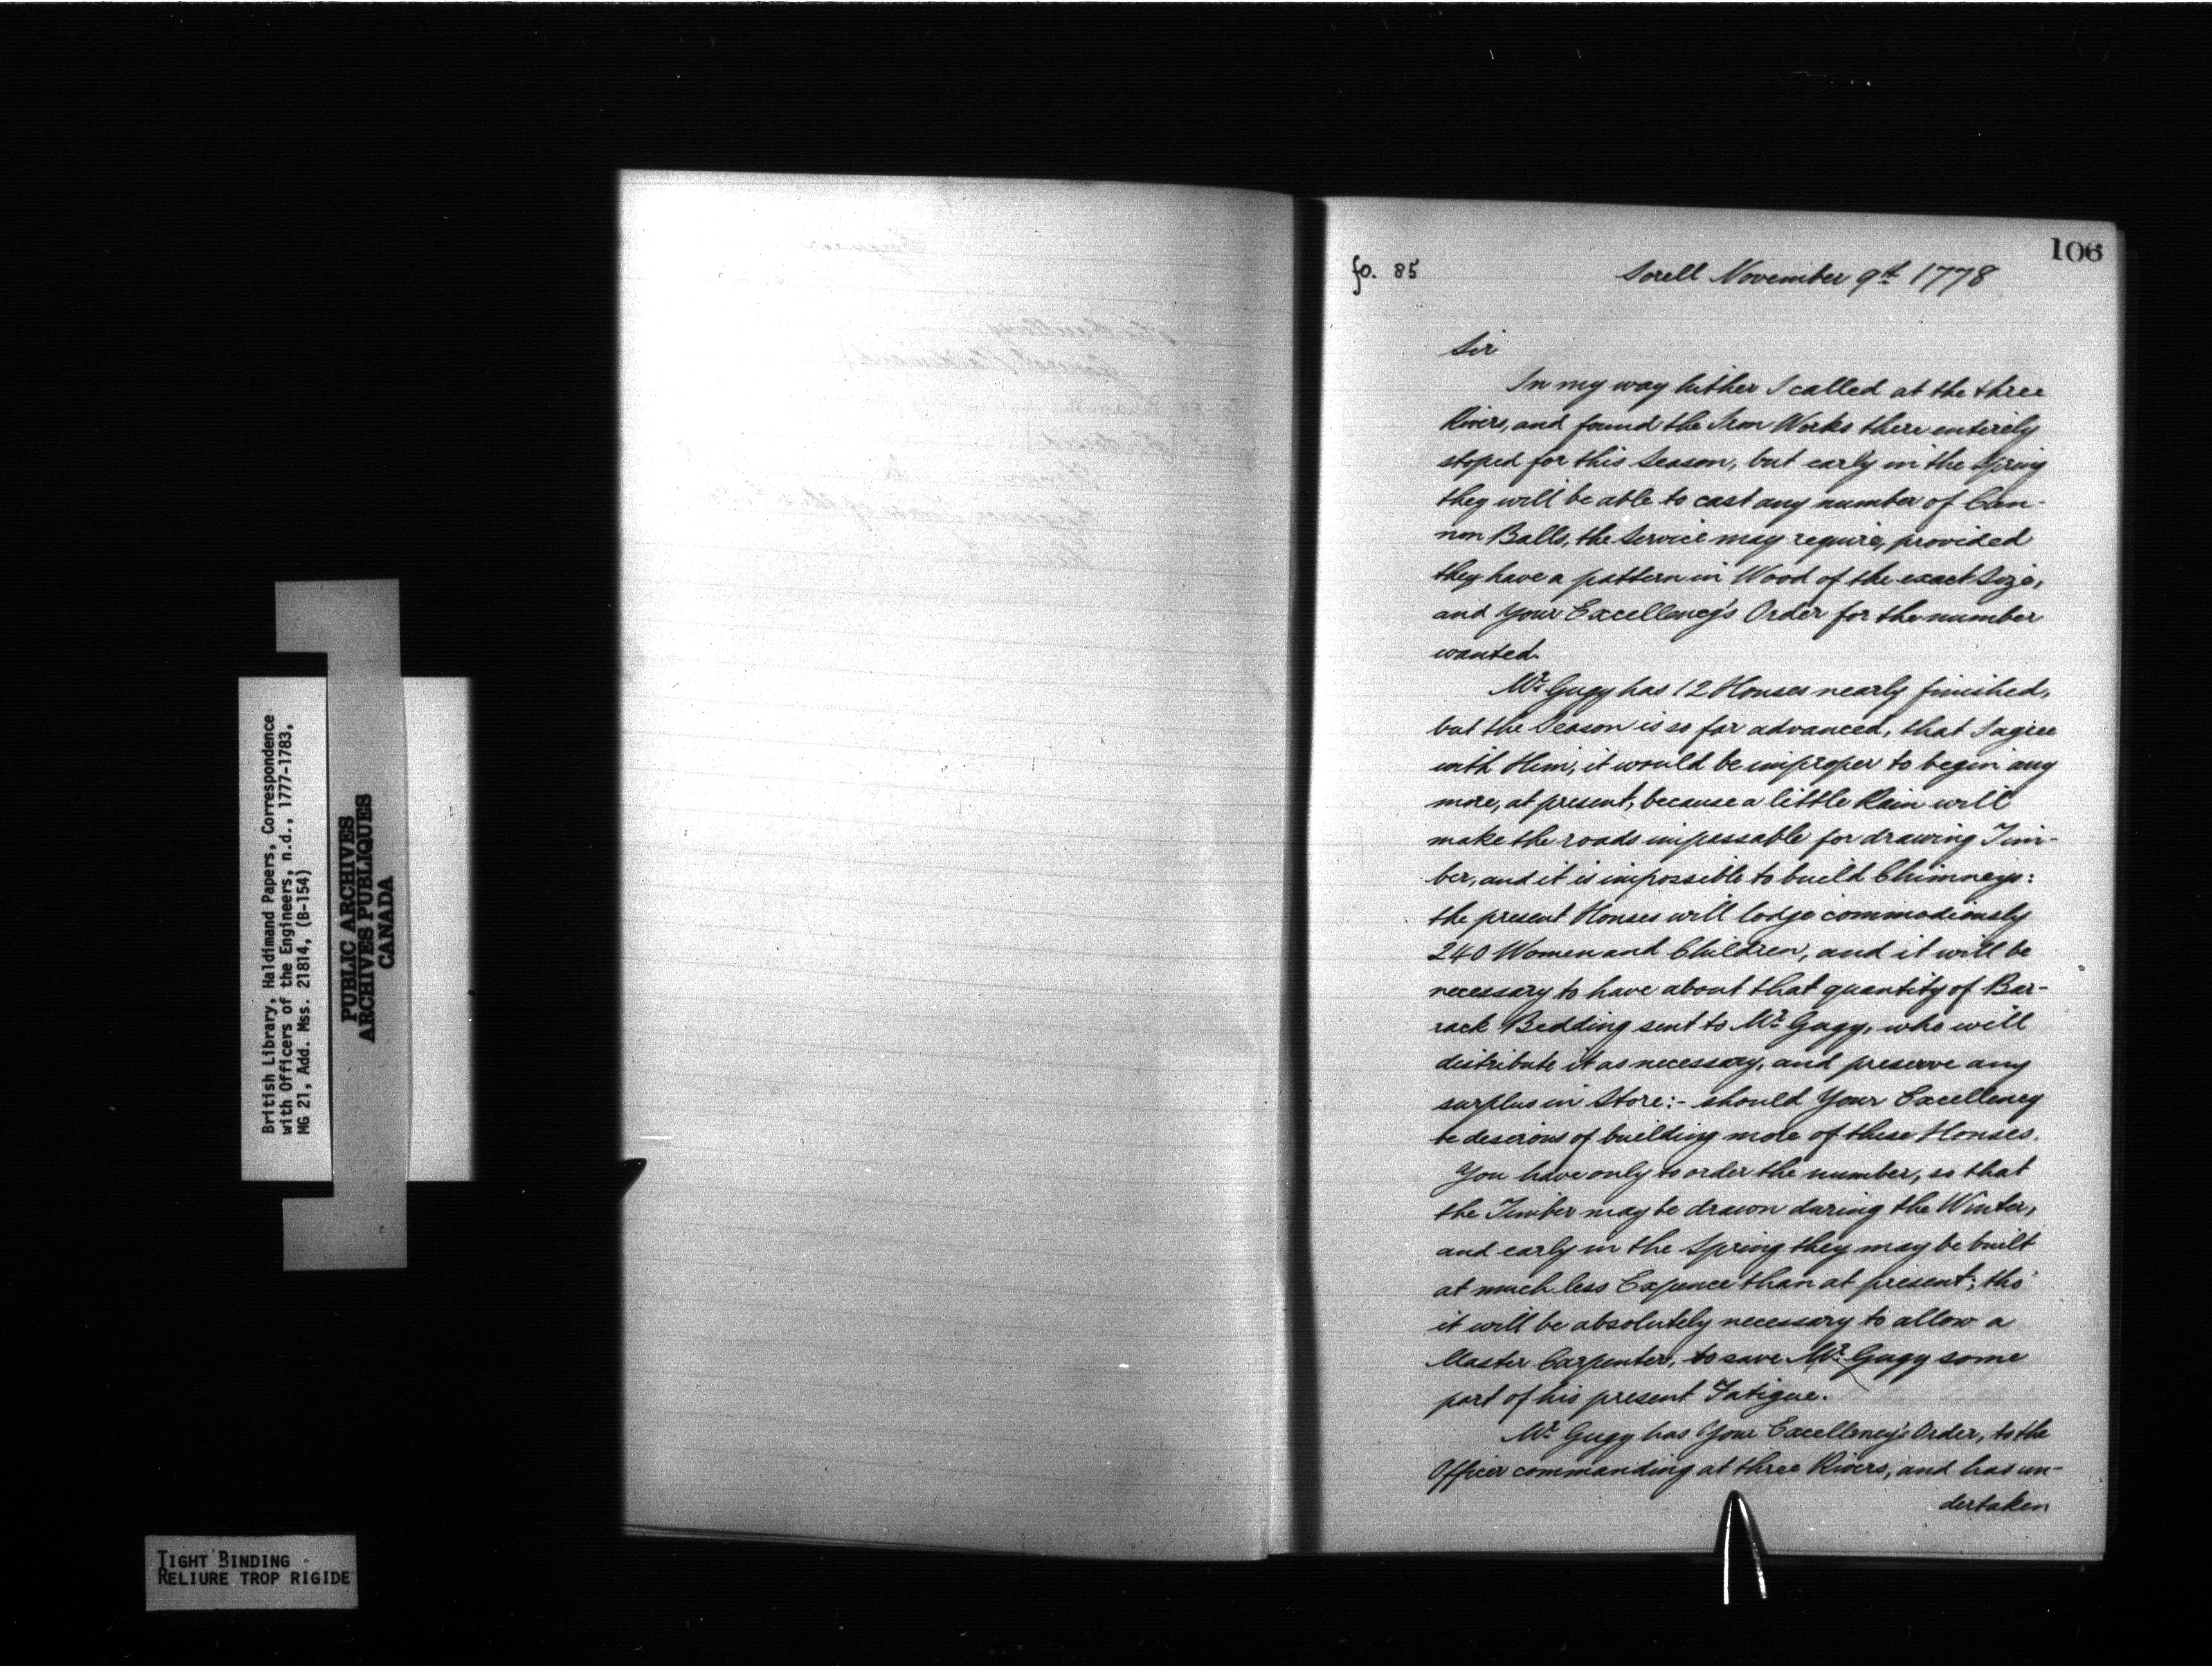 106
fo. 85
Sorell November 9th 1778
Sir
In my way hither I called at the three
Rivers, and found the Iron Works there entirely
stoped for this Season, but early in the Spring
they will be able to cast any number of Can-
non Balls, the Service may require, provided
they have a pattern in Wood of the exact Size,
and Your Excellency's Order for the number
wanted.
Mr. Gugy has 12 Houses nearly finished,
but the Season is so far advanced, that I agree
with Him, it would be improper to begin any
more, at present, because a little Rain will
make the roads impassable for drawing Tim-
ber, and it is impossible to build Chimneys:
the present Houses will lodge commodiously
240 Women and Children, and it will be
necessary to have about that quantity of Bar-
rack Bedding sent to Mr. Gugy, who will
distribute it as necessary, and preserve any
surplus in Store:- should Your Excellency
be deserious of building more of these Houses.
You have only to order the number, so that
the Timber may be drawn during the Winter,
and early in the Spring they may be built
at much less Expence than at present; tho'
it will be absolutely necessary to allow a
Master Carpenter, to save Mr. Gugy some
part of his present Fatigue.
Mr. Gugy has Your Excellency's Order, to the
Officer commanding at three Rivers, and has un-
dertaken
British Library, Haldimand Papers, Correspondence
with Officers of the Engineers, n.d., 1777-1783,
MG 21, Add. Mss. 21814, (B-154)
PUBLIC ARCHIVES
ARCHIVES PUBLIQUES
CANADA
TIGHT BINDING
RELIURE TROP RIGIDE